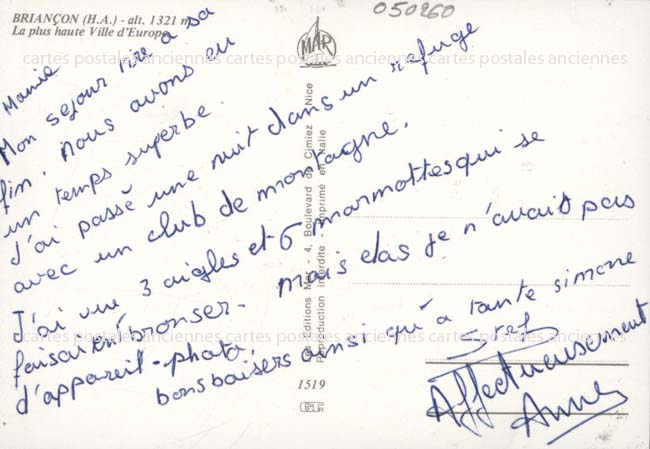 050260
BRIANÇON (H.A.) - alt. 1321 m
La plus haute Ville d'Europe
MAR
cartes postales anciennes cartes postales anciennes cartes postales anciennes
Mamie
Mon sejour tire a sa
fin. nous avons eu
un temps superbe.
J'ai passé une nuit dans un refuge
avec un club de montagne.
J'ai vue 3 aigles et 6 marmottes qui se
faisaient bronser. mais elas je n'avait pas
d'appareil-photo.
bons baisers ainsi qu'a tante simone
Affectueusement
Anne
Les Editions Mar - 4, Boulevard de Cimiez - Nice
Reproduction interdite - Imprimé en Italie
cartes postales anciennes cartes postales anciennes cartes postales anciennes
1519